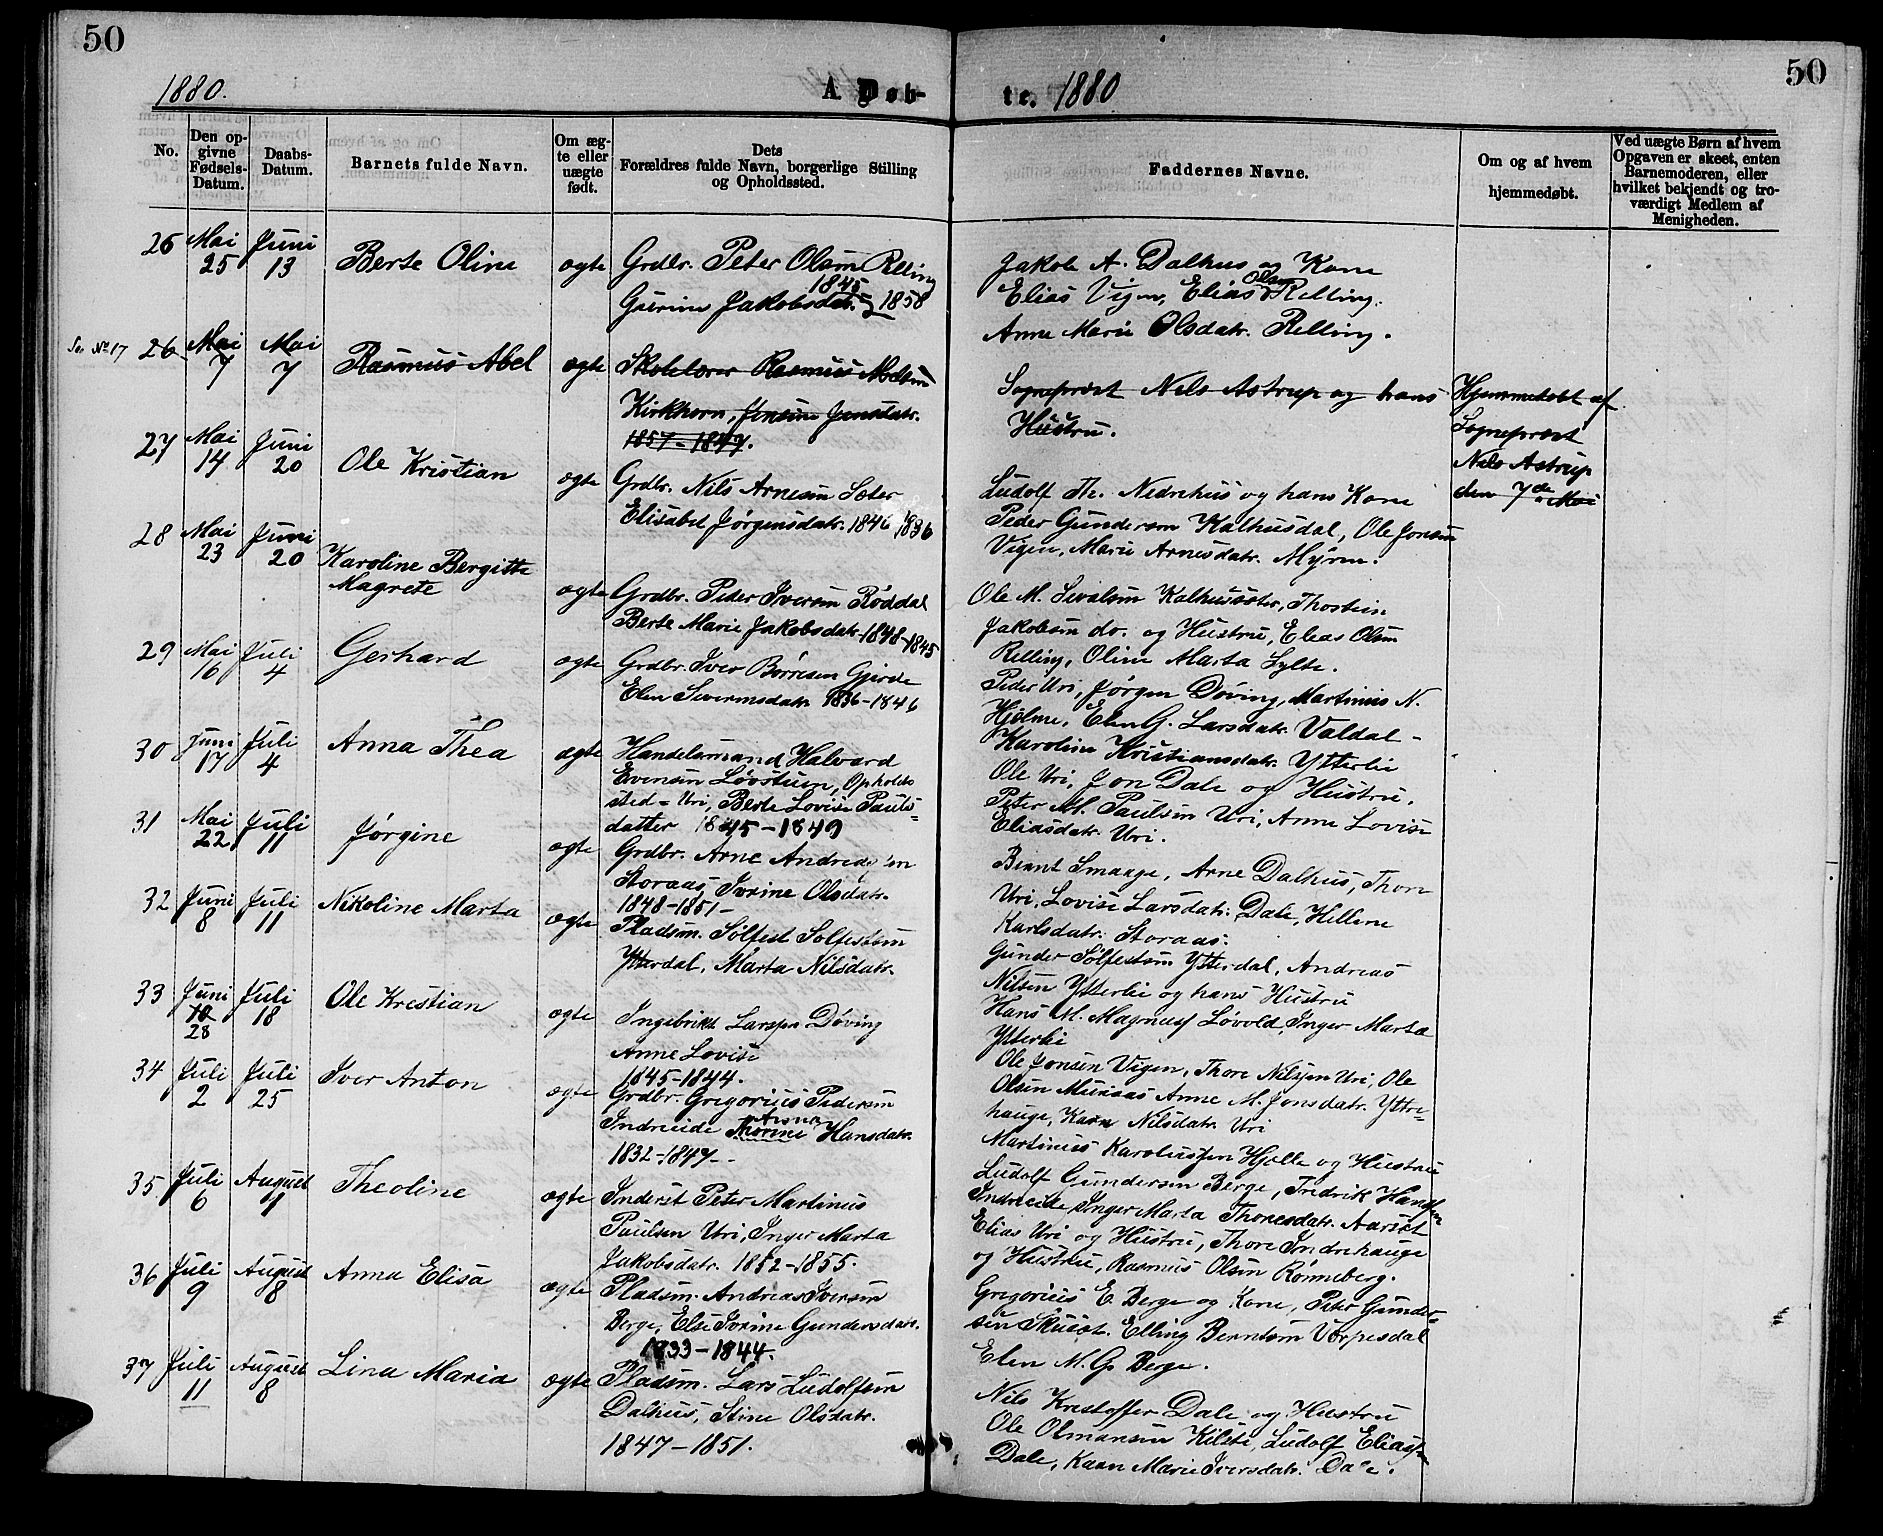 50
50
1880.
A. Døb-
te. 1880
No.
Den op-
givne
Fødsels-
Datum.
Daabs-
Datum.
Barnets fulde Navn.
Om æg-
te eller
uægte
født.
Dets
Forældres fulde Navn, borgerlige Stilling
og Opholdssted.
Faddernes Navne.
Om og af hvem
hjemmedøbt.
Ved uægte Børn af hvem
Opgaven er skeet, enten
Barnemoderen, eller
hvilket bekjendt og tro-
værdigt Medlem af
Menigheden.
26 Mai 25 Juni 13 Berte Oline ægte
Grdbr. Peter Olsen Relling
1845
Gurine Jakobsdatr. 1858
Jakob A. Dalhus og Kone
Elias Vigen, Elias Olsen Relling.
Anne Marie Olsdatr. Relling.
Se No 17 26 Mai 7 Mai 7 Rasmus Abel ægte
Skolelærer Rasmus
Kirkhorn, Jensine Jensdatr.
1857-1849.
Sognepræst Nils Astrup og hans
Hustru.
Hjemmedøbt af
Sognepræst
Nils Astrup
den 7de Mai
27 Mai 14 Juni 20 Ole Kristian ægte
Grdbr. Nils Arnesen Sæter
Elisabet Jørgensdatr. 1846 1836
Ludolf Th. Nedrehus og hans Kone
Peder Gundersen Kalhusdal, Ole Jonsen
Vigen, Marie Arnesdatr. Myren.
28 Mai 23 Juni 20 Karoline Bergitte
Magrete ægte
Grdbr. Peder Iversen Røddal
Berte Marie Jakobsdatr. 1848-1845
Ole M. Sivalsen Kalhussæter, Thostein
Jakobsen do. og Hustru, Elias Olsen
Relling, Oline Marta Lylte.
29 Mai 16 Juli 4 Gerhard ægte
Grdbr. Iver Børresen Gjerde
Elen Severinsdatr. 1836-1846
Peder Uri, Jørgen Døving, Martinus N.
Hjelme, Elen G. Larsdatr. Valdal-
Karoline Kristiansdatr. Ytterlie
30 Juni 17 Juli 4 Anna Thea ægte
Handelsmand Halvard
Evensen Løvstuen, Opholds
sted = Uri, Berte Lovise Pauls=
datter 1845-1849
Ole Uri, Jon Dale og Hustru.
Peter M. Paulsen Uri, Anne Lovise
Eliasdatr. Uri.
31 Mai 22 Juli 11 Jørgine ægte
Grdbr. Arne Andreassen
Storaas, Ivrine Olsdatr.
1848-1851-
Bernt Smaage, Arne Dalhus, Thore
Uri, Lovise Larsdatr. Dale, Hellene
Karlsdatr. Storaas.
32 Juni 8 Juli 11 Nikoline Marta ægte
Pladsm. Sølfest Sølfestsen
Ytterdal, Marta Nilsdatr.
Gunder Sølfestsen Ytterdal, Andreas
Nilsen Ytterlie og hans Hustru
Hans M. Magnussen Løvold, Inger Marta
Ytterlie
33 Juni 10 28 Juli 18 Ole Krestian ægte
Ingebrikt Larssen Døving
Anne Lovise
1845-1844.
Ole Jonsen Vigen, Thore Nilssen Uri, Ole
Olsen Muraas Anne M. Jonsdatr. Yttre=
hauge, Karn Nilsdatr. Uri
34 Juli 2 Juli 25 Iver Anton ægte
Grdbr. Gregorius Pedersen
Indreeide Hansdatr.
1832-1847--
Martinus Karolussen Hjelle og Hustru
Ludolf Gundersen Berge, Fredrik Hanssen
Indreeide, Inger Marta Thoresdatr. Aarset
35 Juli 6 August 1 Theoline ægte
Inderst Peter Martinus
Paulsen Uri, Inger Marta
Jakobsdatr. 1852-1855.
Elias Uri og Hustru, Thore Indrehauge
og Hustru, Rasmus Olsen Rønneberg.
36 Juli 9 August 8 Anna Elisa ægte
Pladsm. Andreas Iversen
Berge, Else Ivrine Gundersdatr.
1833-1844.
Gregorius E. Berge og Kone, Peter Gunder-
sen Skuset. Elling Berntsen Verpesdal
Elen M. G. Berge.
37 Juli 11 August 8 Lina Maria ægte
Pladsm. Lars Ludolfsen
Dalhus, Stine Olsdatr.
1847-1851.
Nils Krestoffer Dale og Hustru
Ole Olmansen Kilsti, Ludolf Eliassen
Dale, Karn Marie Iversdatr. Dale.